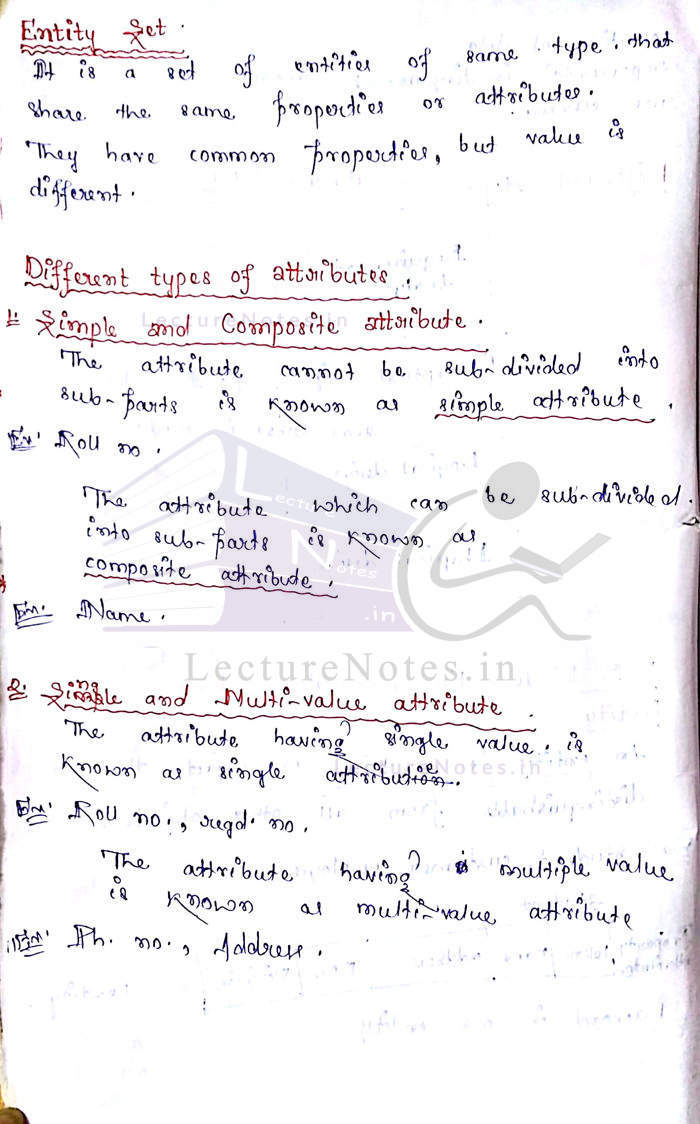 Entity Set.
It is a set of entities of same type. that
share the same properties or attributes.
They have common properties, but value is
different.
Different types of attributes.
1. Simple and Composite attribute.
The attribute cannot be sub-divided into
sub-parts is known as simple attribute.
Ex:- Roll no.
The attribute which can be sub-divided.
into sub-parts is known as,
composite attribute.
Ex:- Name.
LectureNotes.in
2. Single and Multi-value attribute.
The attribute having single value. is
known as single attribute.
Ex:- Roll no., regd. no.
The attribute having multiple value
is known as multi-value attribute
Ex:- Ph. no., Address.